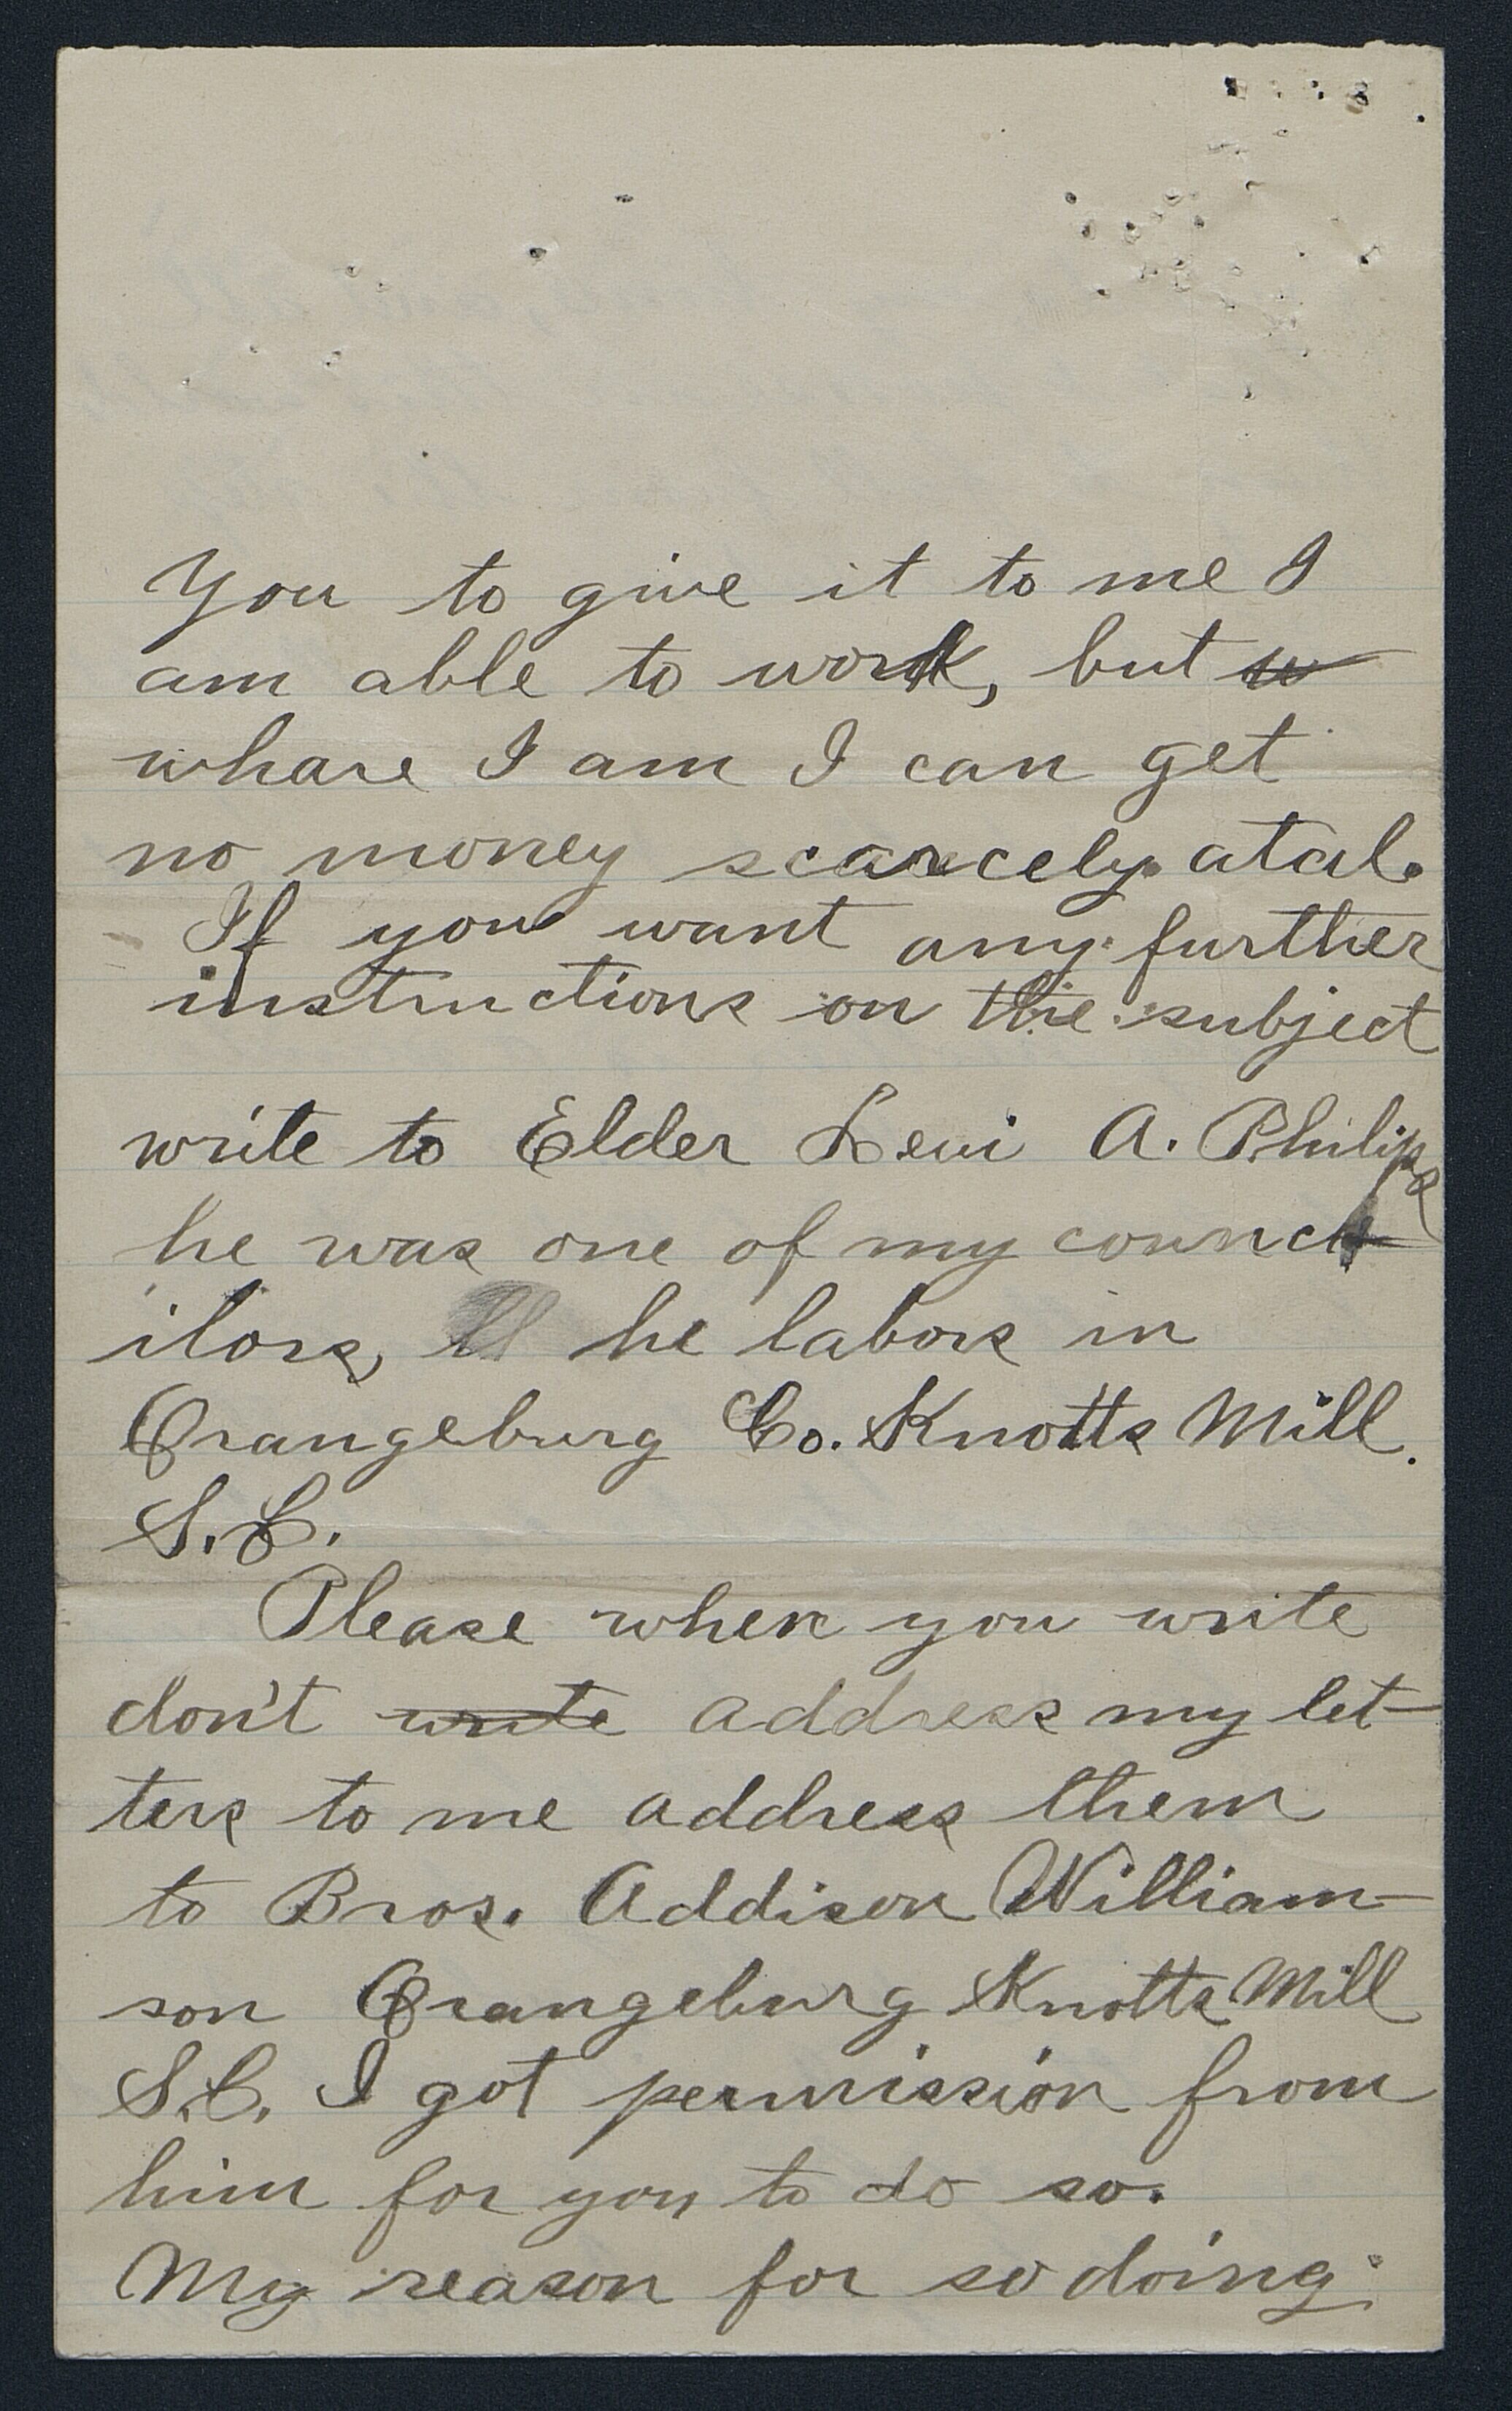 You to give it to me I
am able to work, but w
whare I am I can get
no money scarcely atal.
If you want any further
instructions on the subject
write to Elder Levi A. Philips
he was one of my counc
ilors, he labors in
Orangeburg Co. Knotts Mill.
S.C.
Please when you write
don't write address my let-
ters to me address them
to Bros. Addison William-
son Orangeburg Knotts Mill
S.C. I got permission from
him for you to do so.
My reason for so doing